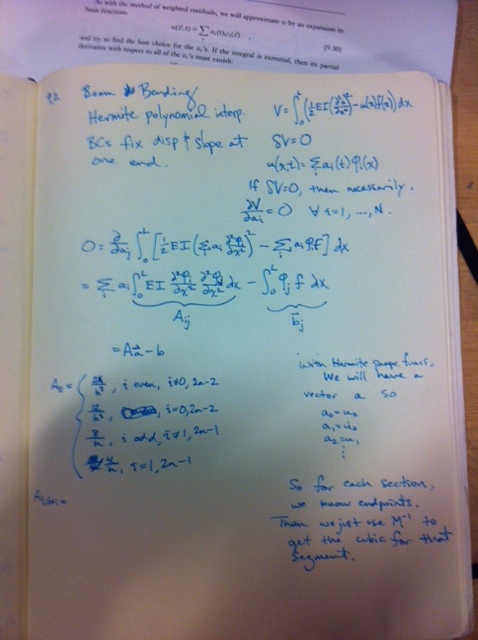 As with the method of weighted residuals, we will approximate u by an expansion in
basis functions
u(x⃗, t) = ∑ᵢ aᵢ(t)φᵢ(x⃗) (9.30)
and try to find the best choice for the aᵢ's. If the integral is extremal, then its partial
derivative with respect to all of the aᵢ's must vanish:
Beam Bending
Hermite polynomial interp.
BCs fix disp & slope at
one end.
V = ∫₀ᴸ (½EI(∂²u/∂x²)² - u(x)f(x)) dx
δV=0
u(x,t) = ∑ aᵢ(t) φᵢ(x)
If δV=0, then necessarily.
∂V/∂aᵢ = 0 ∀ i=1, ..., N.
0 = ∂/∂aⱼ ∫₀ᴸ [½EI(∑ᵢ aᵢ ∂²φᵢ/∂x²)² - ∑ᵢ aᵢφᵢf] dx
= ∑ᵢ aᵢ ∫₀ᴸ EI ∂²φᵢ/∂x² ∂²φⱼ/∂x² dx - ∫₀ᴸ φⱼ f dx
Aᵢⱼ b⃗ⱼ
= Aa⃗ - b
, i even, i≠0, 2n-2
, i=0, 2n-2
8/h, i odd, i≠1, 2n-1
4/h, i=1, 2n-1
with Hermite shape funcs,
We will have a
vector a so
a₀ = u₀
a₁ = u̇₀
a₂ = u₁
⋮
So for each section,
we know endpoints.
Then we just use M⁻¹ to
get the cubic for that
segment.